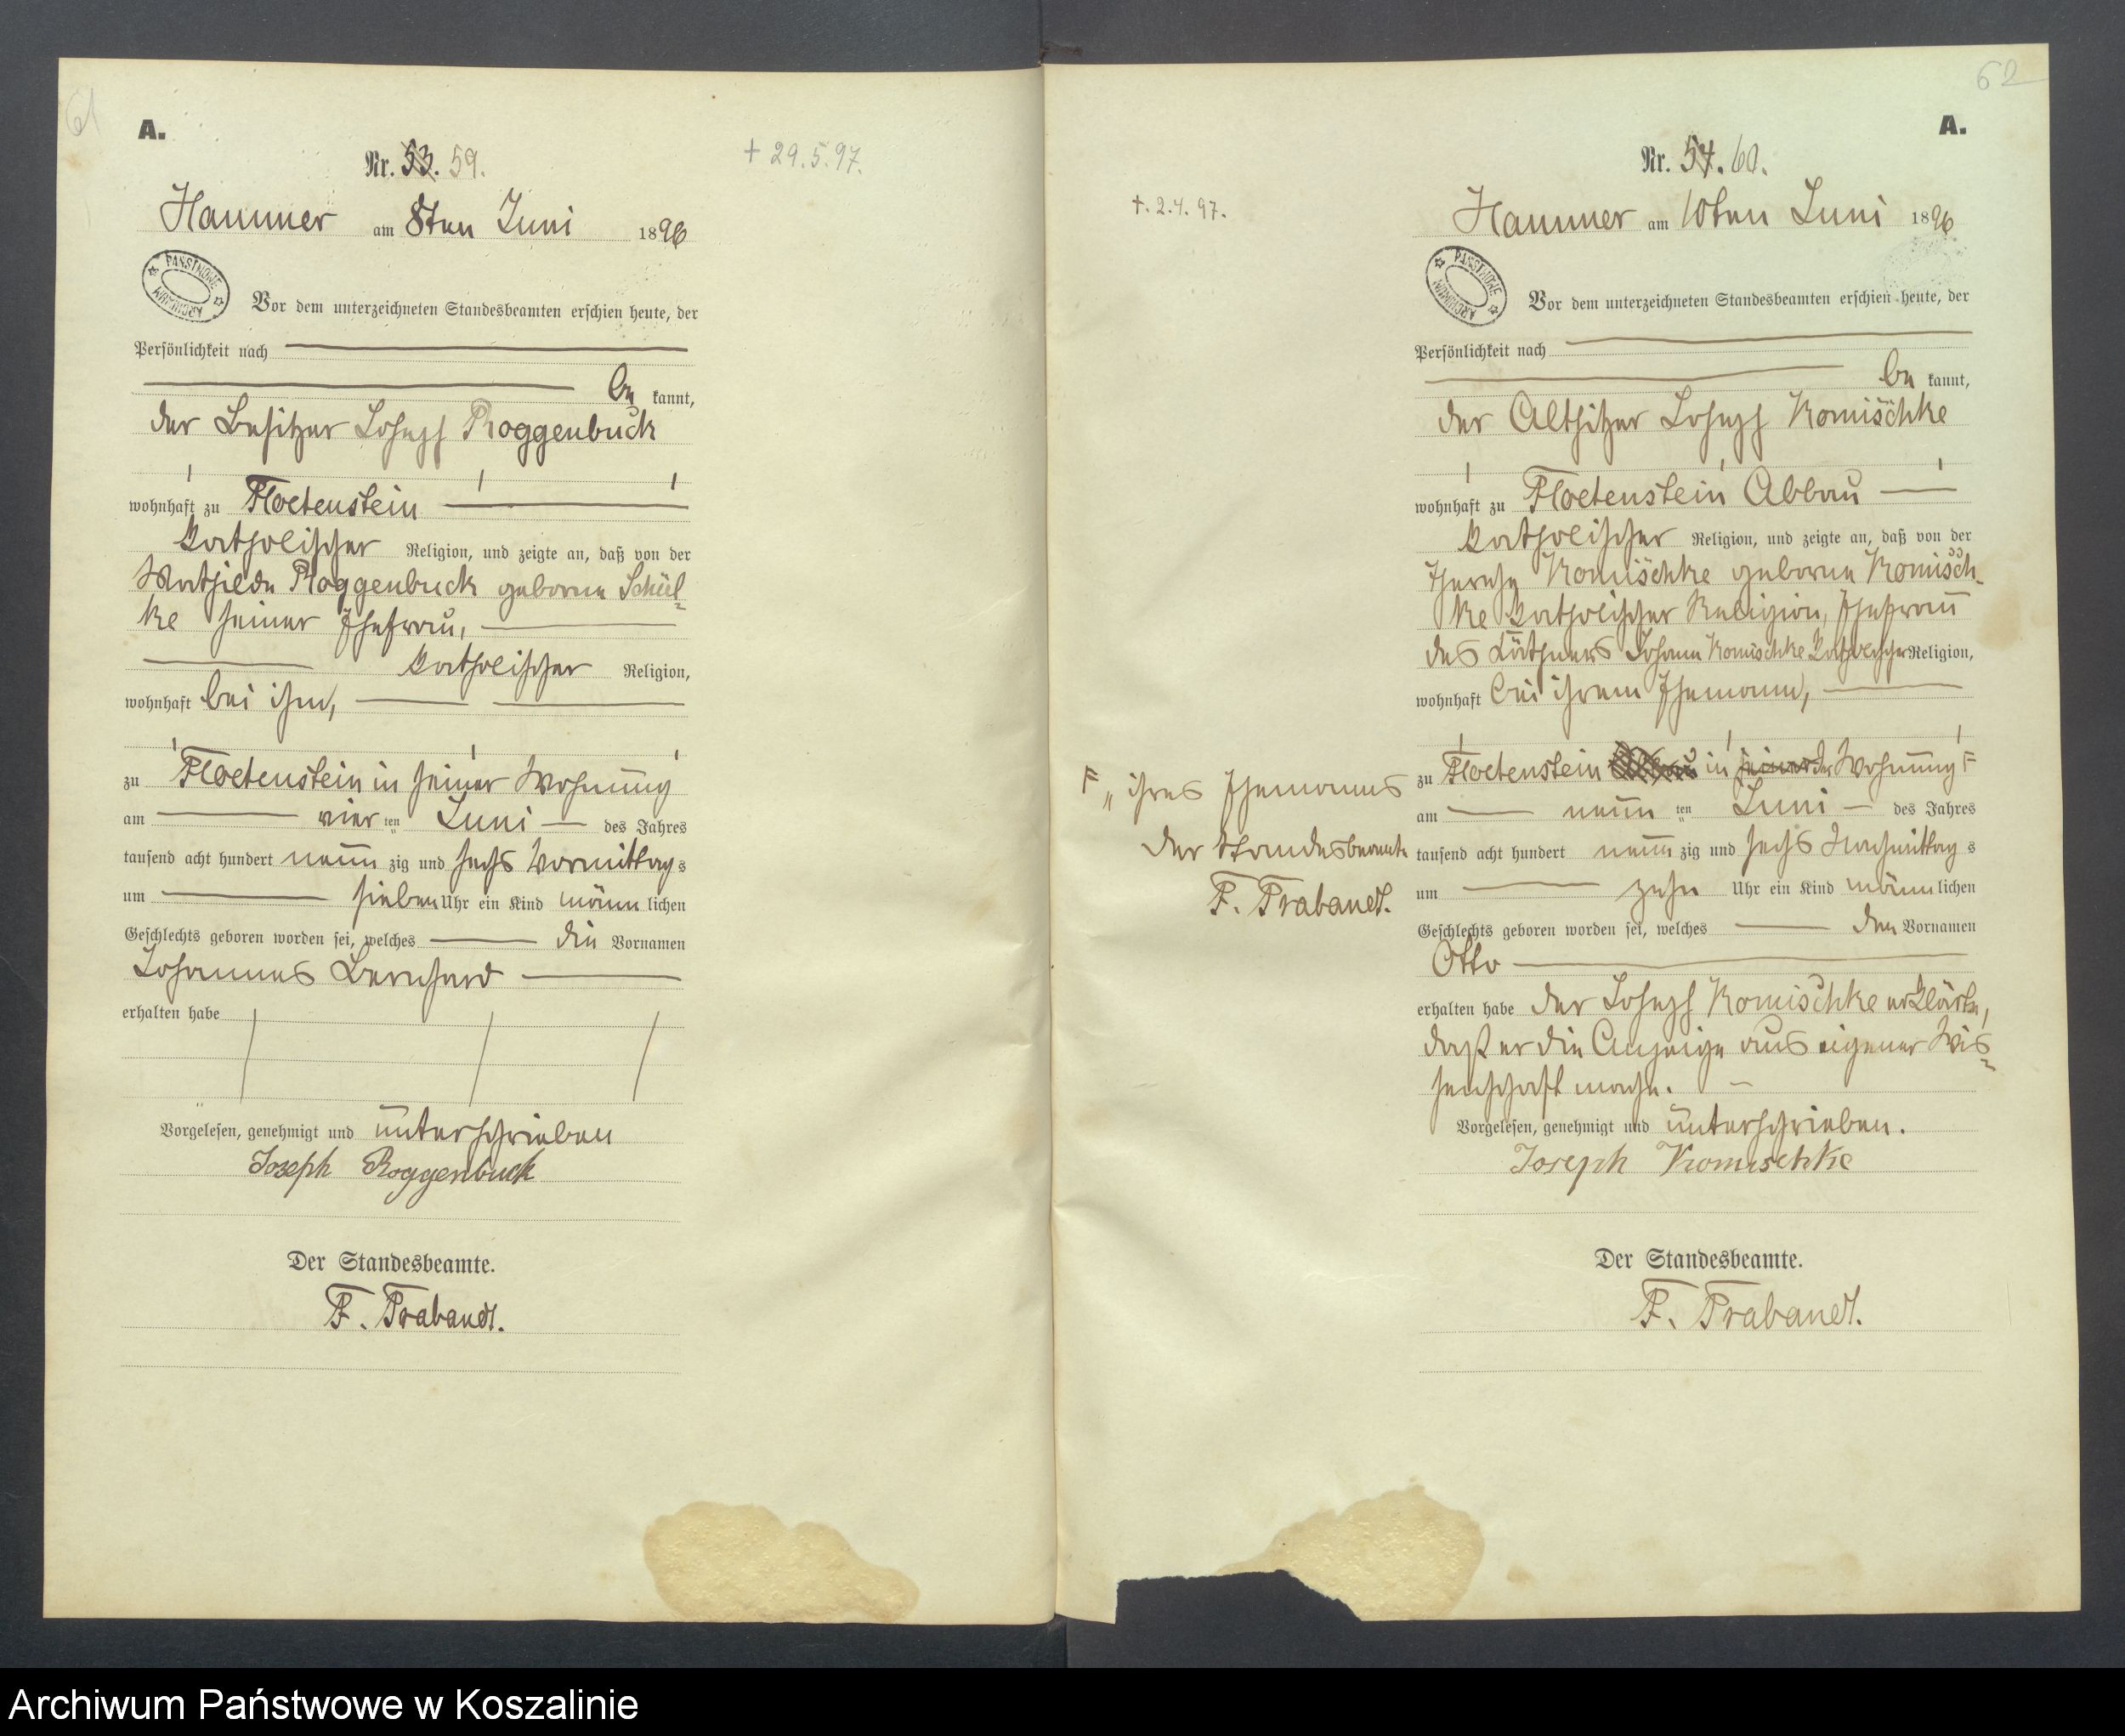 61
A.
Nr. 53. 59.
+ 29.5.97.
Hammer am 8ten Juni 1896
PANSTWOWE ARCHIWUM
Vor dem unterzeichneten Standesbeamten erschien heute, der
Persönlichkeit nach
be kannt,
der Besitzer Joseph Roggenbuck
wohnhaft zu Floetenstein
katholischer Religion, und zeigte an, daß von der
Mathilde Roggenbuck geborne Schül-
ke seiner Ehefrau,
katholischer Religion,
wohnhaft bei ihm,
zu Floetenstein in seiner Wohnung
am vier ten Juni des Jahres
tausend acht hundert neun zig und sechs Vormittag s
um sieben Uhr ein Kind männ lichen
Geschlechts geboren worden sei, welches die Vornamen
Johannes Bernhard
erhalten habe
Vorgelesen, genehmigt und unterschrieben
Joseph Roggenbuck
Der Standesbeamte.
F. Prabandt.
62
A.
Nr. 54. 60.
+. 2.4. 97.
Hammer am 10ten Juni 1896
PANSTWOWE ARCHIWUM
Vor dem unterzeichneten Standesbeamten erschien heute, der
Persönlichkeit nach
be kannt,
der Altsitzer Joseph Komischke
wohnhaft zu Floetenstein Abbau
katholischer Religion, und zeigte an, daß von der
Therese Komischke geborne Komisch-
ke katholischer Religion, Ehefrau
des Käthners Johann Komischke katholischer Religion,
wohnhaft bei ihrem Ehemann,
zu Floetenstein Abbau in seiner der Wohnung F
am neun ten Juni des Jahres
tausend acht hundert neun zig und sechs Nachmittag s
um zehn Uhr ein Kind männ lichen
Geschlechts geboren worden sei, welches den Vornamen
Otto
erhalten habe der Joseph Komischke erklärte,
daß er die Anzeige aus eigener Wis-
senschaft mache.
Vorgelesen, genehmigt und unterschrieben.
Joseph Komischke
Der Standesbeamte.
F. Prabandt.
F „ ihres Ehemannes
Der Standesbeamte
F. Prabandt.
Archiwum Państwowe w Koszalinie